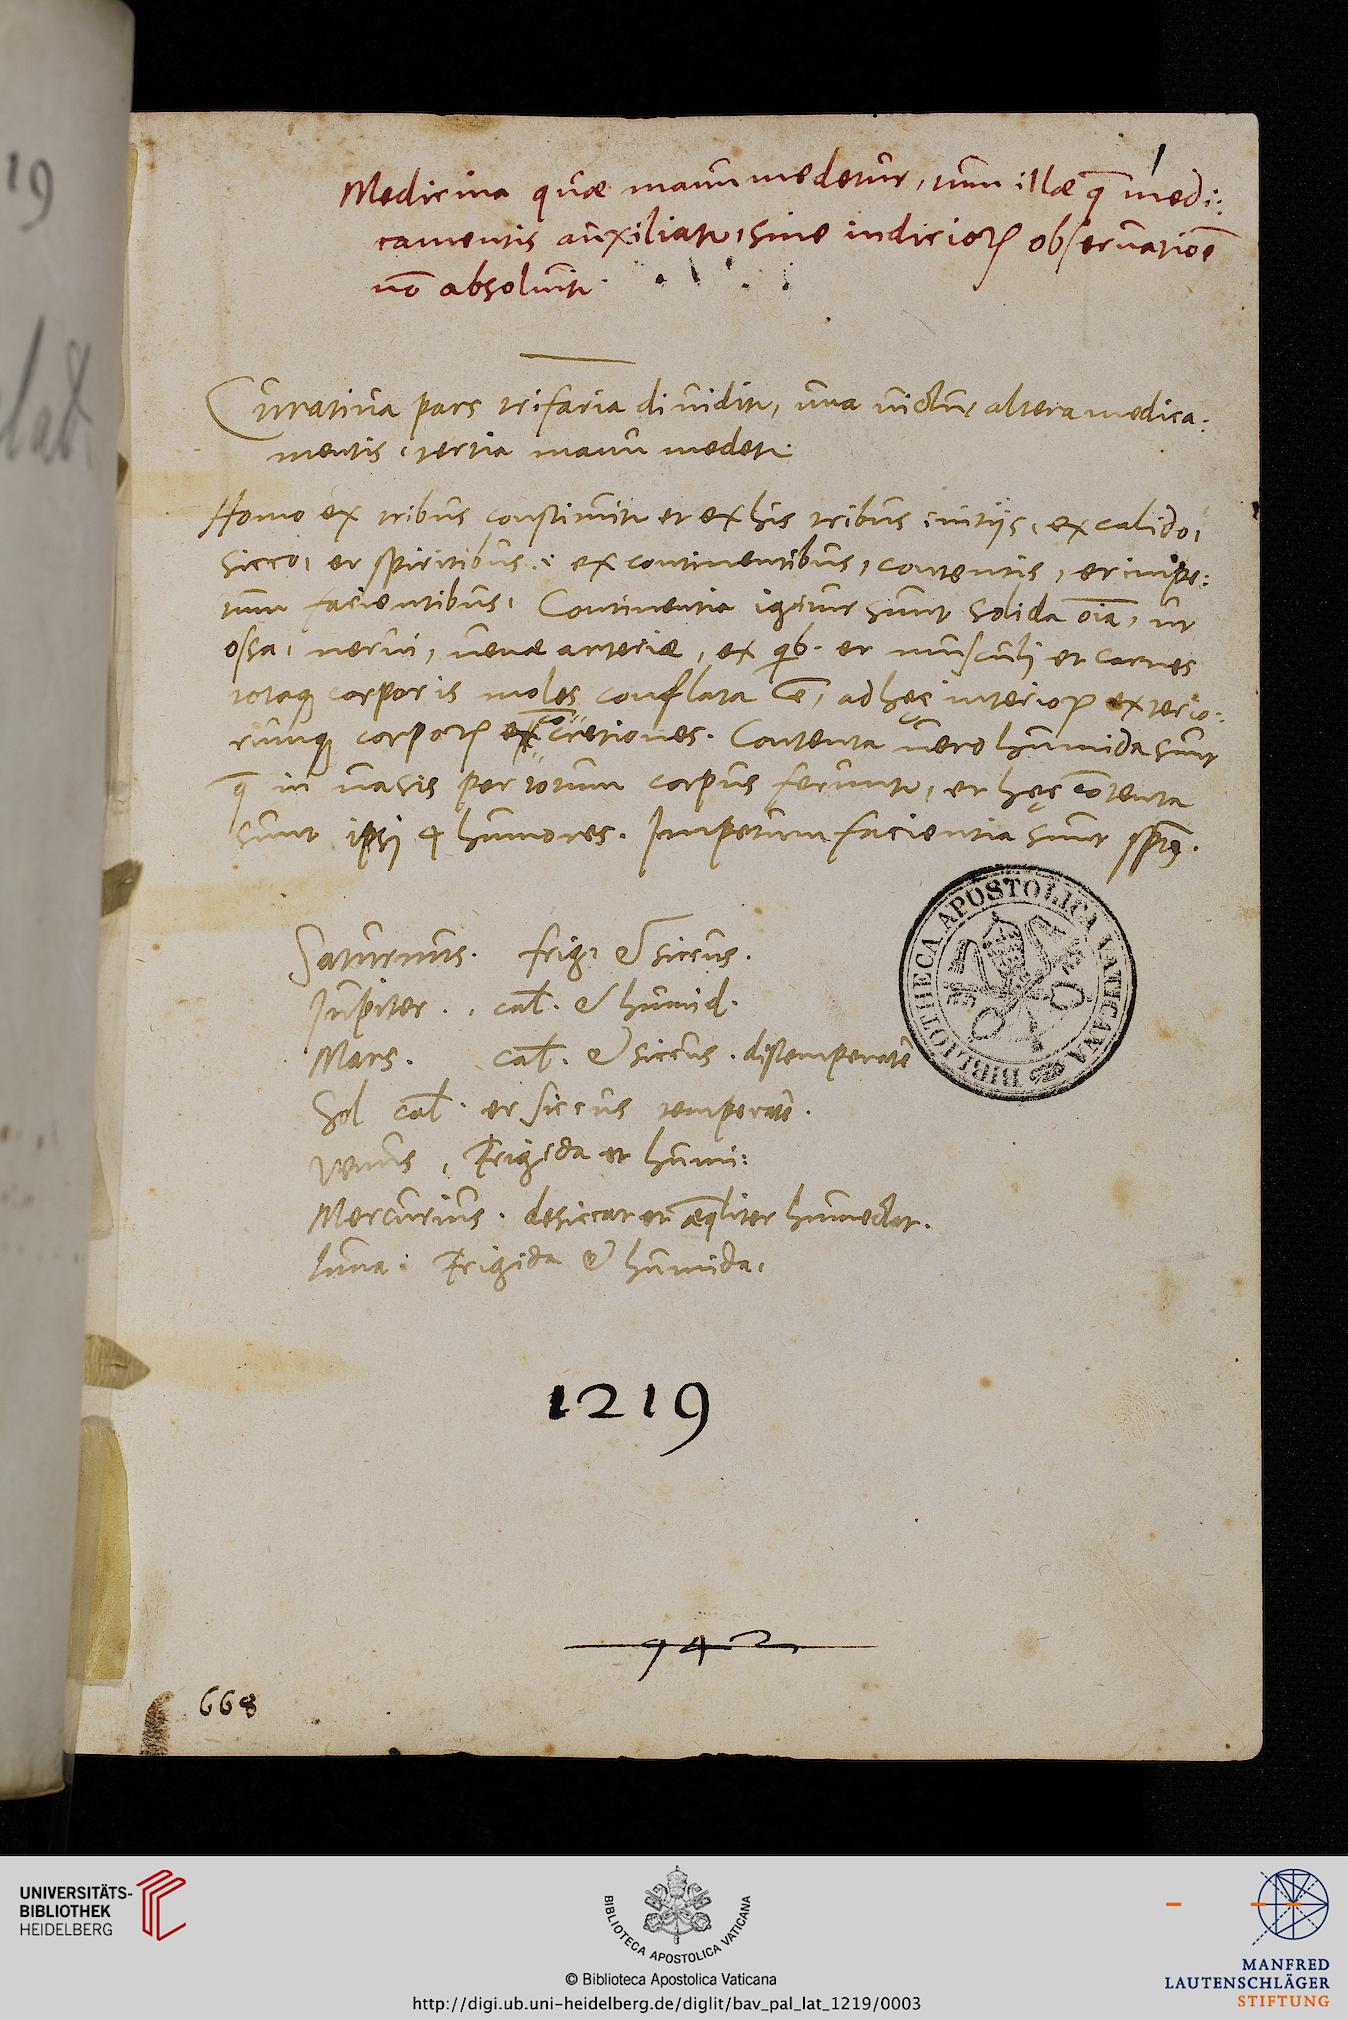 19
lat.
1
Medicina quæ manu medetur, tum illæ q̃ medi:
camentis auxiliatr, sine indicioꝝ obseruatiōe
nō absoluitr.
Curatiua pars trifaria diuiditr, una uictu, altera medica:
mentis, tertia manu medetr.
Homo ex tribus constituitr et ex his tribus initijs, ex calido,
sicco, et spiritibus .i. ex continentibus, contentis, et impe:
tum facientibus. Continentia igitur sunt solida oīa, ut
ossa, nerui, uenæ arteriæ, ex qib. et musculi et carnes
totaq; corporis moles conflata ē, ad hęc interioꝝ exterio:
rumq; corpoꝝ concretiones. Contenta uero humida sunt
q̃ in uasis per totum corpus feruntr, et hęc cōtenta
sunt ipsi 4 humores. Impetum facientia sunt spūs.
Saturnus. frig. & siccus.
Jupiter. cal. & humid.
Mars. cal. & siccus. distemperatē
Sol cal. et siccus temperatē.
Venus, Frigida et humi:
Mercurius. desiccat et æqliter humectat.
Luna: Frigida & humida.
BIBLIOTHECA APOSTOLICA VATICANA
1219
942
668
UNIVERSITÄTS-
BIBLIOTHEK
HEIDELBERG
BIBLIOTECA APOSTOLICA VATICANA
© Biblioteca Apostolica Vaticana
http://digi.ub.uni-heidelberg.de/diglit/bav_pal_lat_1219/0003
MANFRED
LAUTENSCHLÄGER
STIFTUNG